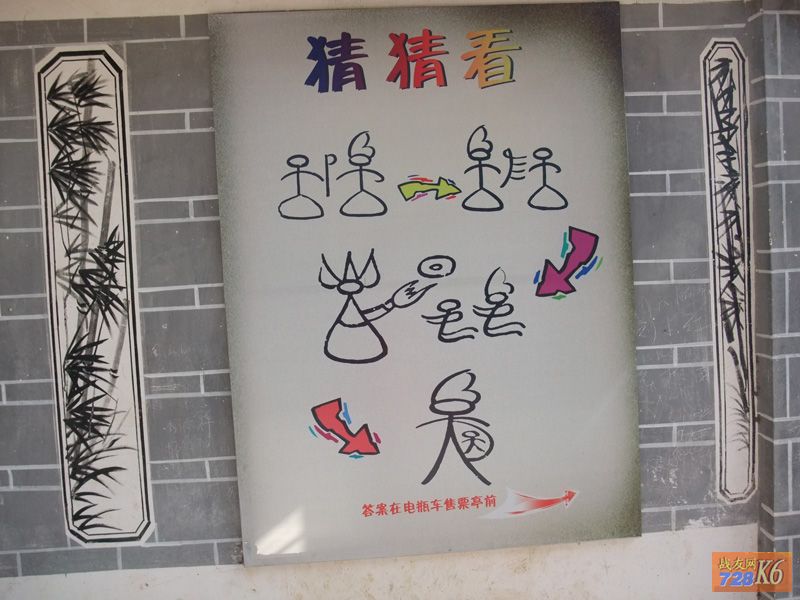 猜猜看
答案在电瓶车售票亭前
战友网
728K6